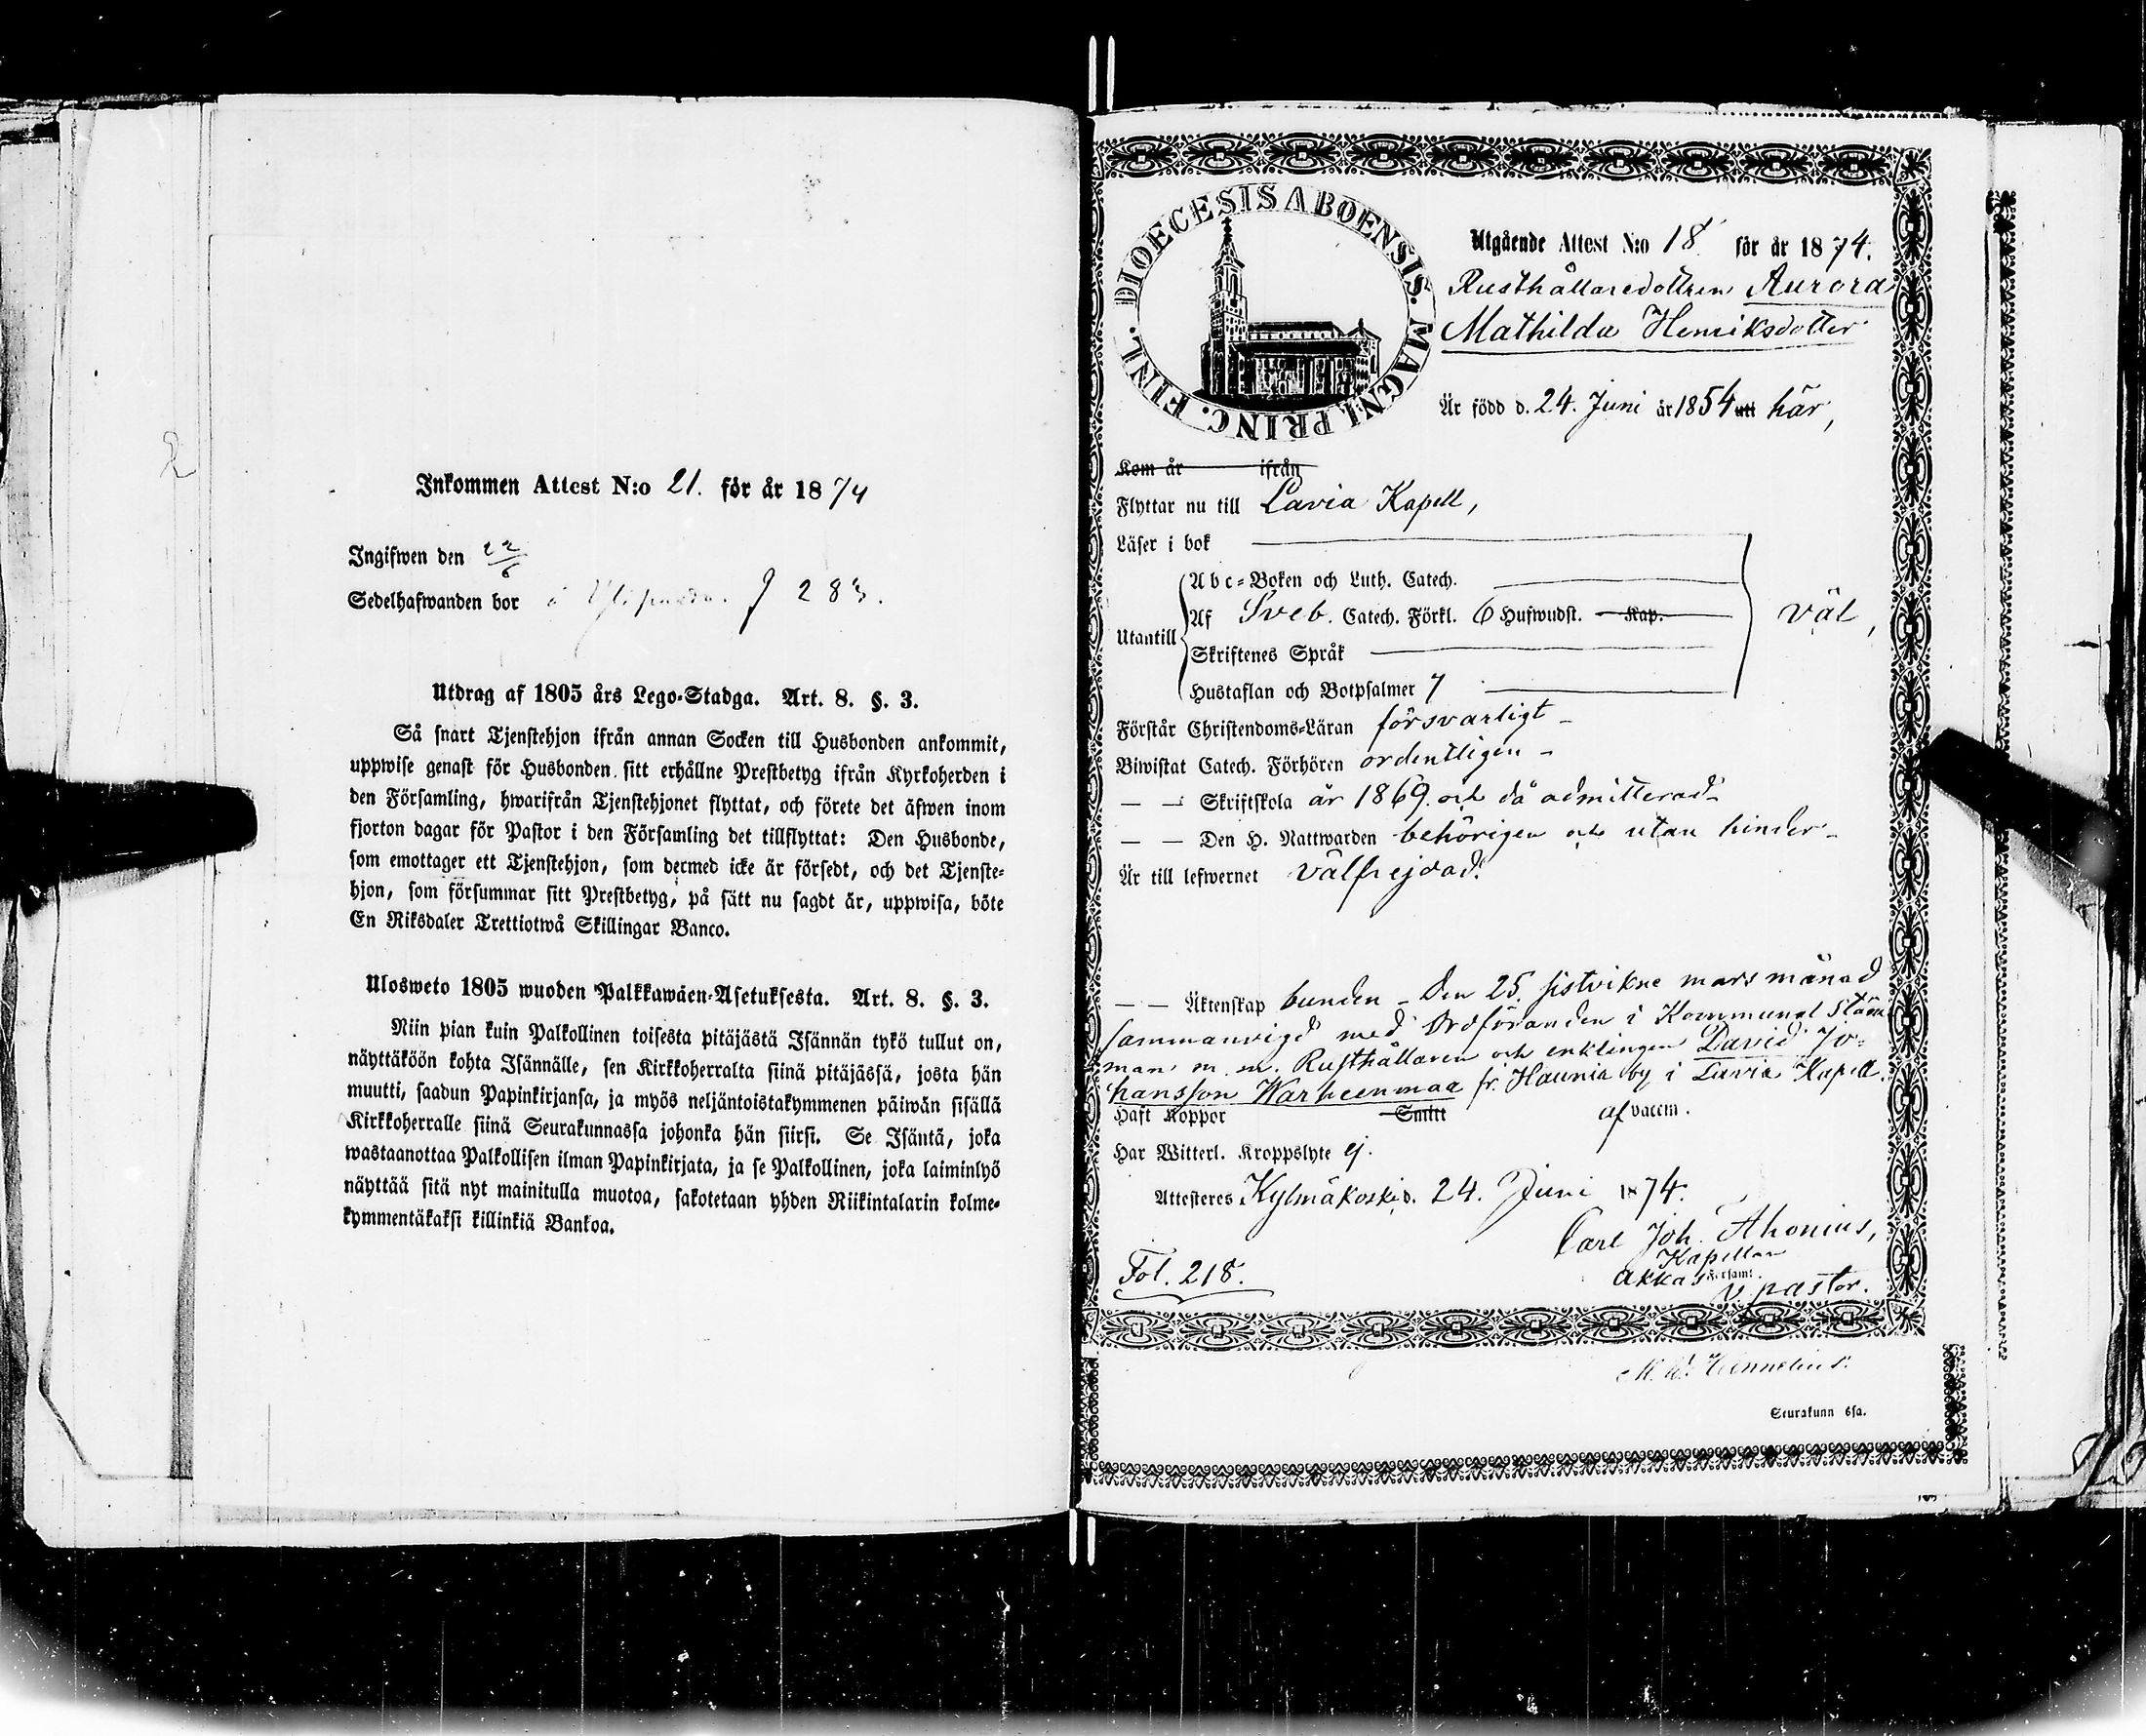 2
Inkommen Attest N:o 21. för år 1874
Ingifwen den 22/6
Sedelhafwanden bor 283.
Utdrag af 1805 års Lego-Stadga. Art. 8. §. 3.
Så snart Tjenstehjon ifrån annan Socken till Husbonden ankommit,
uppwise genast för Husbonden sitt erhållne Prestbetyg ifrån Kyrkoherden i
den Församling, hwarifrån Tjenstehjonet flyttat, och förete det äfwen inom
fjorton dagar för Pastor i den Församling det tillflyttat: Den Husbonde,
som emottager ett Tjenstehjon, som dermed icke är försedt, och det Tjenste-
hjon, som försummar sitt Prestbetyg, på sätt nu sagdt är, uppwisa, böte
En Riksdaler Trettiotwå Skillingar Banco.
Ulosweto 1805 wuoden Palkkawäen-Asetuksesta. Art. 8. §. 3.
Niin pian kuin Palkollinen toisesta pitäjästä Isännän tykö tullut on,
näyttäköön kohta Isännälle, sen Kirkkoherralta siinä pitäjässä, josta hän
muutti, saadun Papinkirjansa, ja myös neljäntoistakymmenen päiwän sisällä
Kirkkoherralle siinä Seurakunnassa johonka hän siirsi. Se Isäntä, joka
wastaanottaa Palkollisen ilman Papinkirjata, ja se Palkollinen, joka laiminlyö
näyttää sitä nyt mainitulla muotoa, sakotetaan yhden Riikintalarin kolme-
kymmentäkaksi killinkiä Bankoa.
DIOECESIS ABOENSIS. MAGNI PRINC. FINL.
Utgående Attest N:o 18 för år 1874.
Rusthållaredottren Aurora
Mathilda Henriksdotter
Är född d. 24. Juni år 1854 utt här,
Kom år ifrån
Flyttar nu till Lavia Kapell,
Läser i bok
Abc-Boken och Luth. Catech.
Utantill Af Sveb. Catech. Förkl. 6 Hufwudst. Kap. väl,
Skriftenes Språk
Hustaflan och Botpsalmer 7
Förstår Christendoms-Läran försvarligt -
Biwistat Catech. Förhören ordentligen -
— — Skriftskola år 1869. och då admitterad -
— — Den H. Nattwarden behörigen och utan hinder -
Är till lefwernet välfrejdad.
— — Äktenskap bunden - Den 25. sistvikne mars månad
sammanvigd med Ordföranden i Kommunal Stäm
man m. m. Rusthållaren och enklingen David Jo-
hansson Karheenmaa fr. Haunia by i Lavia Kapell.
Haft Koppor Smitt af vaccin.
Har Witterl. Kroppslyte ej.
Attesteres Kylmäkoski d. 24. Juni 1874.
Carl Joh. Ahonius,
Kapellan
Akkas Församl.
v pastor.
Fol. 218.
Seurakunn ssa.